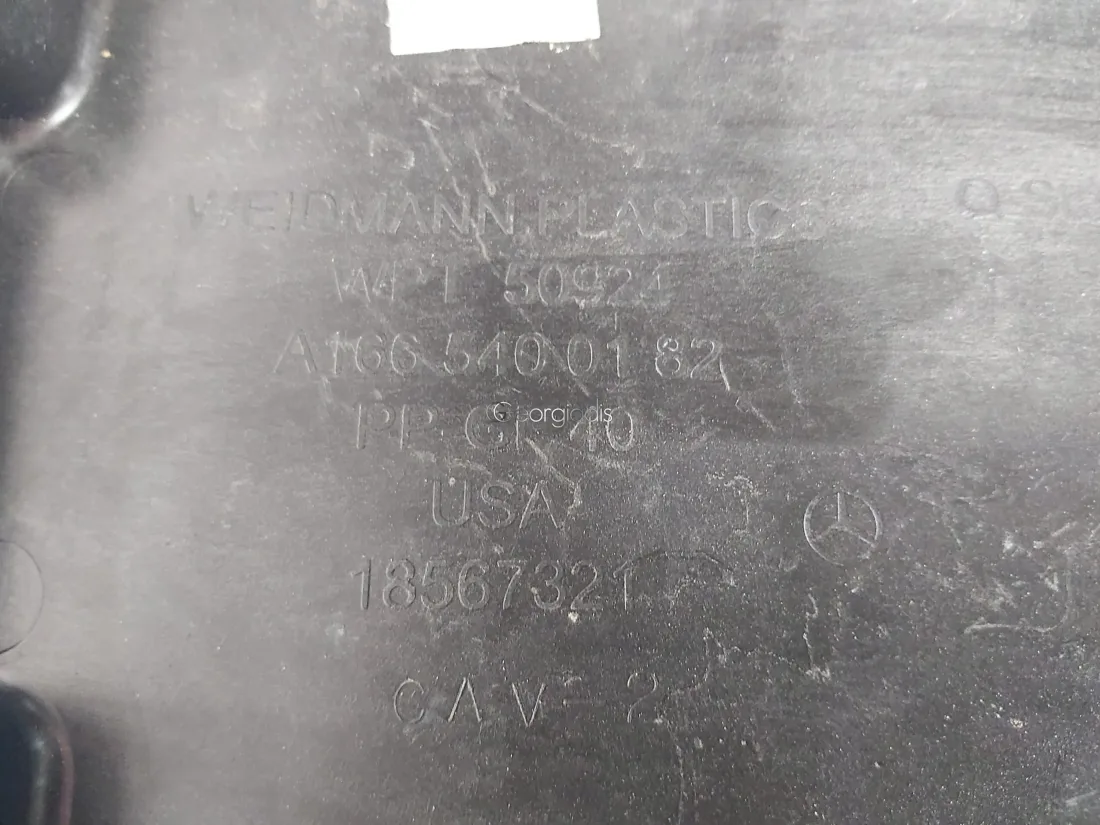 WEIDMANN PLASTICS
WPT 50924
A 166 540 01 82
PP GF 40
Georgiadis
USA
18567321
CAV - 2